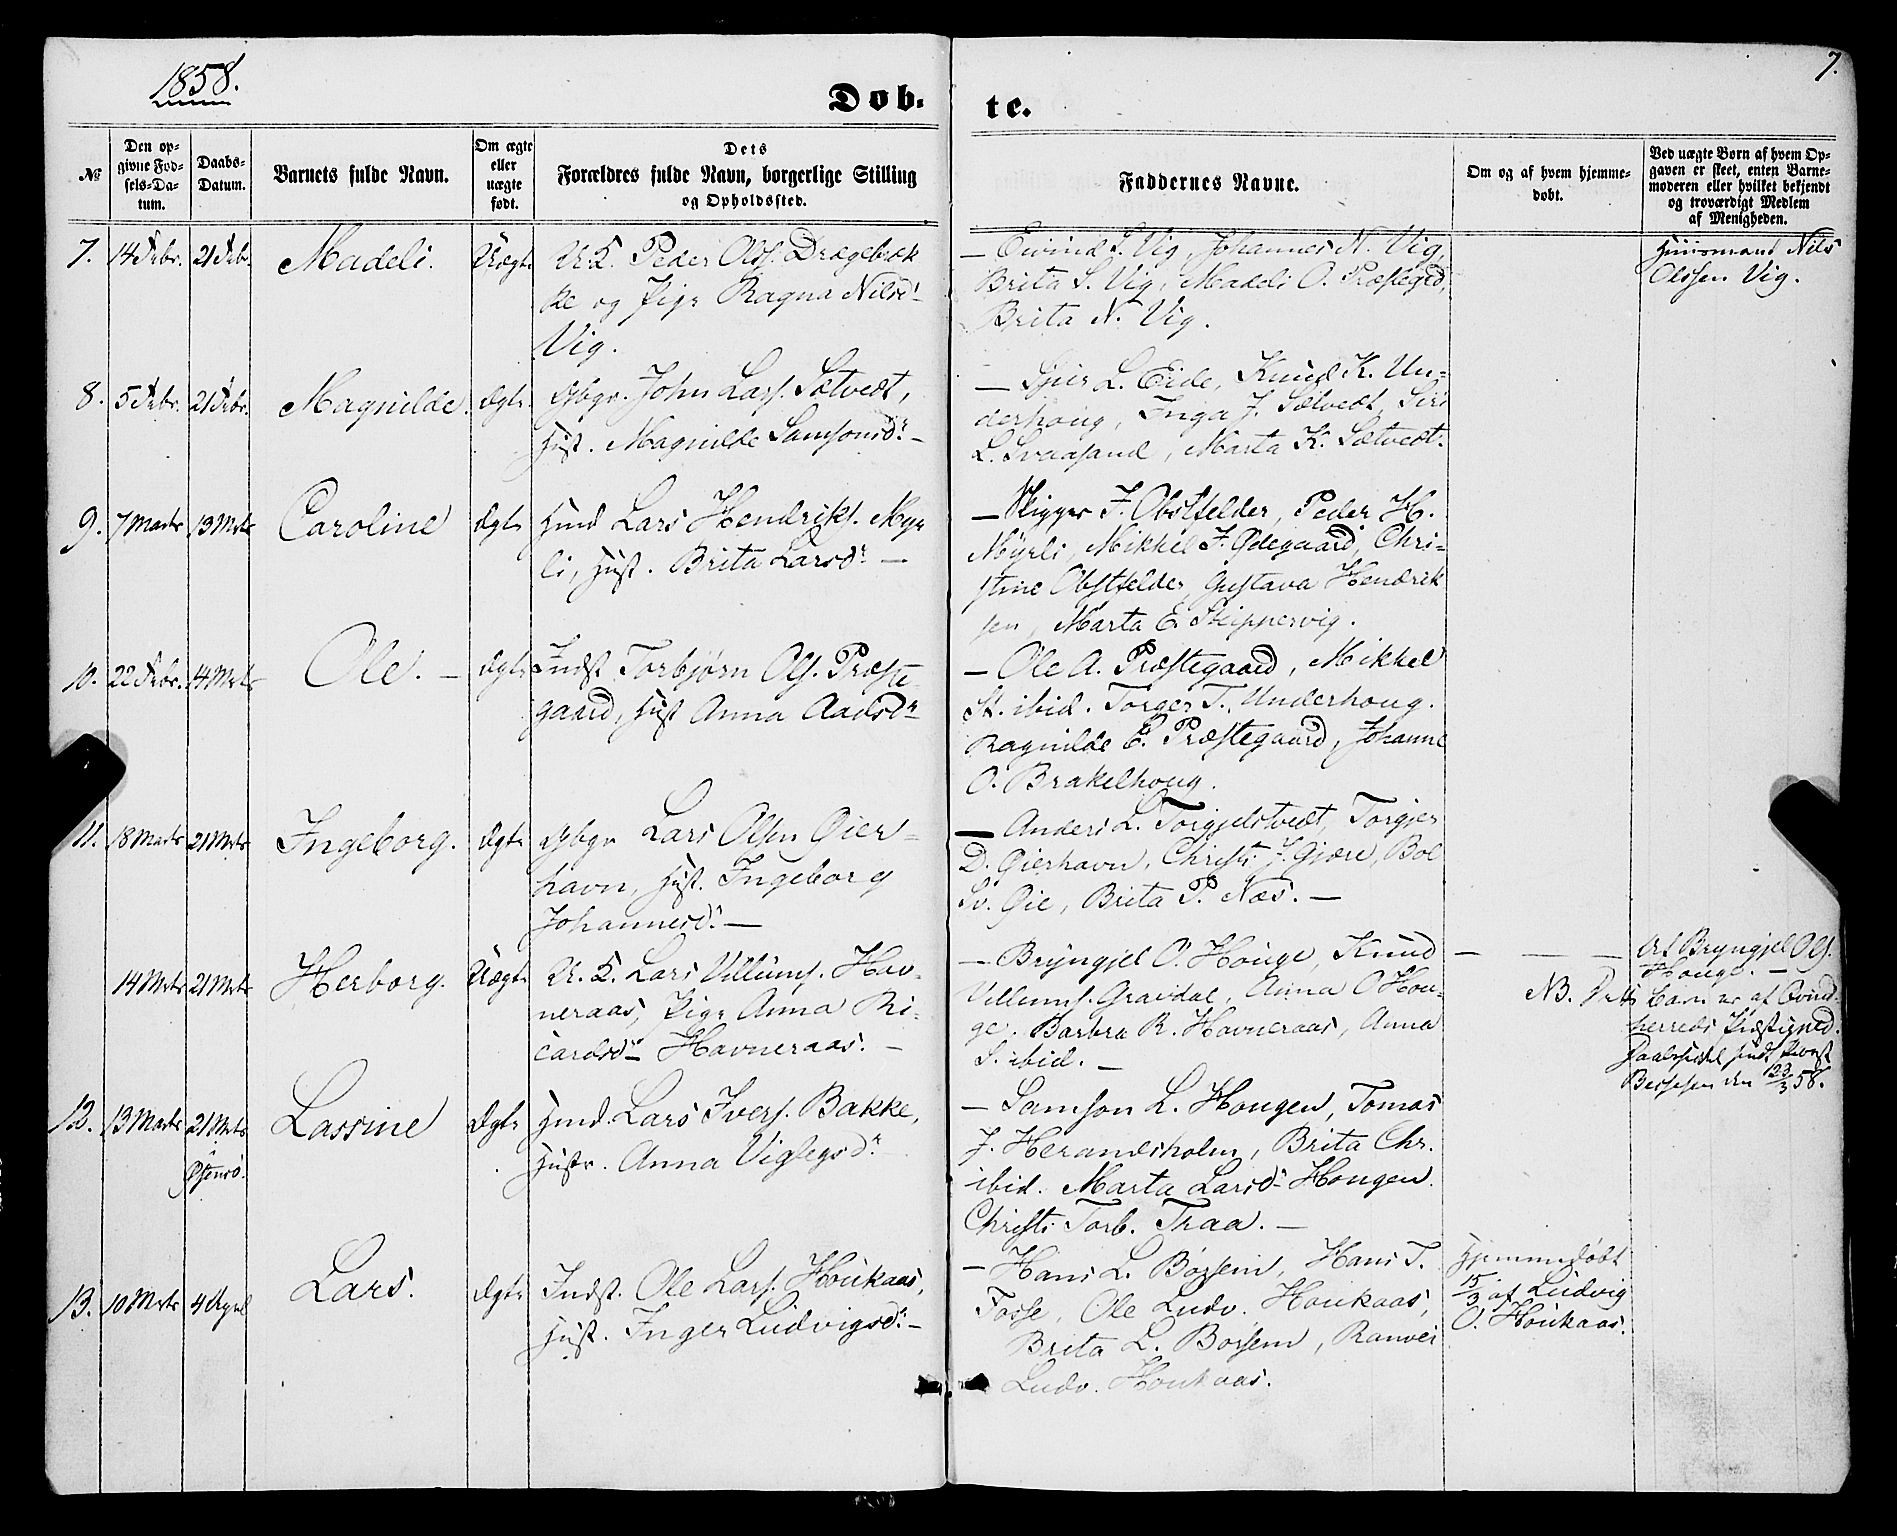 1858.
7.
Døb-
te.
№
Den op-
givne Fød-
sels-Da-
tum.
Daabs-
Datum.
Barnets fulde Navn.
Om ægte
eller
uægte
født.
Dets
Forældres fulde Navn, borgerlige Stilling
og Opholdssted.
Faddernes Navne.
Om og af hvem hjemme-
døbt.
Ved uægte Børn af hvem Op-
gaven er skeet, enten Barne-
moderen eller hvilket bekjendt
og troværdigt Medlem
af Menigheden.
7. 14 Febr. 21 Febr. Madeli. Uægte
U. K. Peder Ols. Drægebæk
ke og Pige Ragna Nilsd.
Vig.
– Eivind S. Vig, Johannes N. Vig,
Brita S. Vig, Madeli O. Præstegrd,
Brita N. Vig.
Huusmand Nils
Olssen Vig.
8. 5 Febr. 21 Febr. Magnilde. Ægte
Gbgr. John Lars. Sætvedt,
Hust. Magnilde Samsonsdr. –
– L. Eide, Knud K. Un-
derhoug, Inga J. Sætvedt, Siri
L. Svaasand, Marta K. Sætvedt.
9. 7 Marts 13 Mrts Caroline Ægte
Hmd Lars Hendriks. Myr
li, Hust. Brita Larsdr. –
– J. Obstfelder, Peder H.
Myrli, Mikkel J. Ødegaard, Chri-
stine Obstfelder, Gustava Hendrik
sen, Marta E. Skippervig.
10. 22 Febr. 14 Mrts Ole. – Ægte
Indst Torbjørn Ols. Præste-
gaard, Hust Anna Aadsdr
– Ole A. Præstegaard, Mikkel
St. ibid. Torger T. Underhoug.
Ragnilde E. Præstegaard, Johanne
O. Brakelhoug.
11. 18 Marts 21 Mrts Ingeborg. Ægte
Gbgr Lars Olsen Øier-
havn, Hust. Ingeborg
Johannesdr. –
– Anders L. Torgjelstvedt, Torgjer
D. Øierhavn, Christi J. Gjære, Boe
Sv. Øie, Brita P. Næs. –
14 Mrts 21 Mrts Herborg. Uægte
U. K. Lars Villums. Hav-
neraas, Pige Anna Ri-
cardsdr Havneraas. –
– Bryngjel O. Houge, Knud
Villums. Gravdal, Anna O Hou-
ge. Barbra R. Havneraas, Anna
S. ibid. –
– – –
Af Bryngjel Ols.
Houge. –
NB. Dette Barn er af Qvind-
herreds Præstgjeld.
Daabsseddel sendt Provst
den 23/3 58.
12. 13 Marts 21 Mrts Lassine Ægte
i
Østensø.
Hmd. Lars Ivers. Bakke,
Hustr. Anna Viglegsdr
– Samson L. Hougen, Tomas
J. Herandsholm, Brita Chr.
ibid. Marta Larsdr Hougen.
Christi Torb. Traa. –
13. 10 Mrts 4 April Lars. Ægte
Indst. Ole Lars. Houkaas,
Hust. Inger Ludvigsdr. –
– Hans L. Børsem, Hans T.
Fosse, Ole Ludv. Houkaas,
Brita L. Børsem, Ranvei
Ludv. Houkaas.
Hjemmedøbt
15/3 af Ludvig
O. Houkaas.